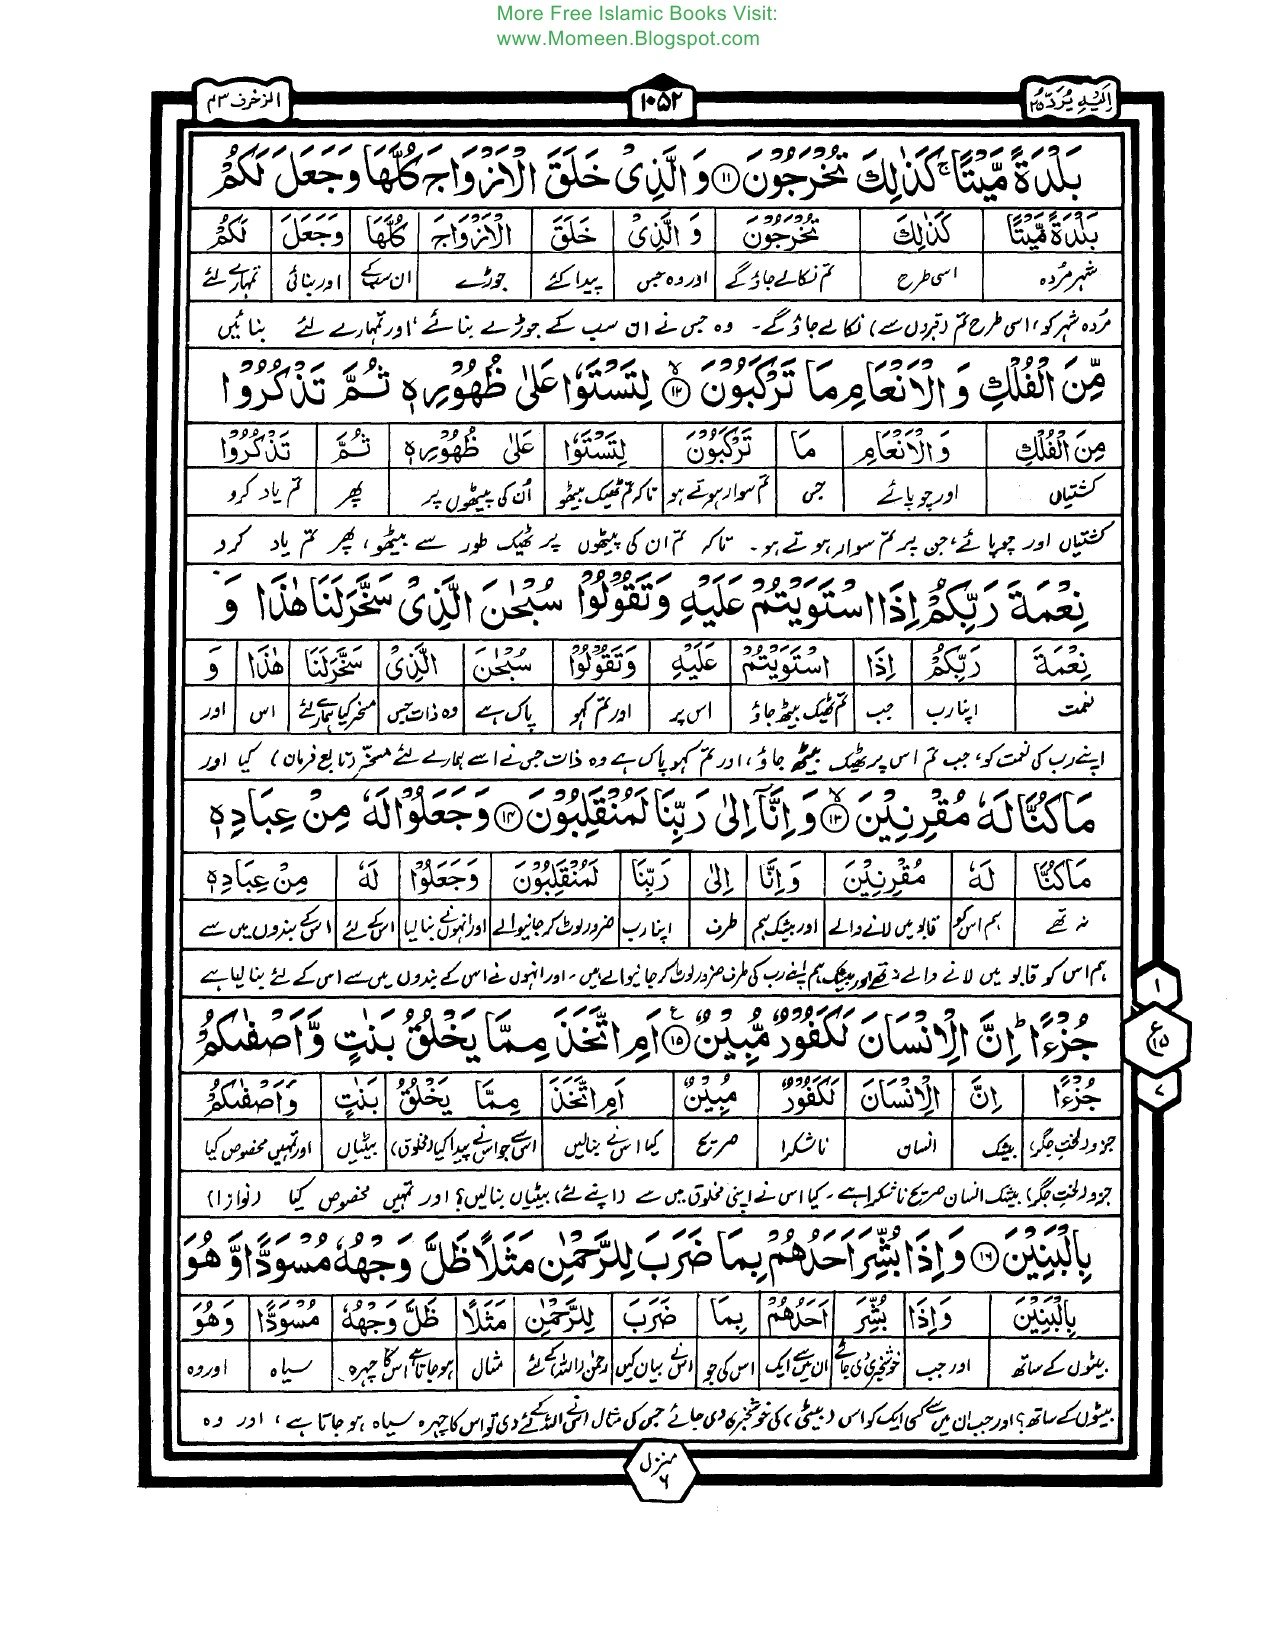 More Free Islamic Books Visit:
www.Momeen.Blogspot.com
اِلَیْہِ یُرَدُّ ۲۵
۱۰۵۲
الزخرف ۴۳
بَلْدَةً مَّيْتًا ۚ كَذٰلِكَ تُخْرَجُوْنَ ۝۱۱ وَ الَّذِىْ خَلَقَ الْاَزْوَاجَ كُلَّهَا وَجَعَلَ لَكُمْ
بَلْدَةً مَّيْتًا كَذٰلِكَ تُخْرَجُوْنَ وَ الَّذِىْ خَلَقَ الْاَزْوَاجَ كُلَّهَا وَجَعَلَ لَكُمْ
شہر مُردہ اسی طرح تم نکالے جاؤ گے اور وہ جس پیدا کئے جوڑے ان سب کے اور بنائی تمہارے لئے
مُردہ شہر کو، اسی طرح تم (قبروں سے) نکالے جاؤ گے۔ وہ جس نے ان سب کے جوڑے بنائے، اور تمہارے لئے بنائیں
مِّنَ الْفُلْكِ وَ الْاَنْعَامِ مَا تَرْكَبُوْنَ ۝۱۲ لِتَسْتَوٗا عَلٰى ظُهُوْرِهٖ ثُمَّ تَذْكُرُوْا
مِنَ الْفُلْكِ وَ الْاَنْعَامِ مَا تَرْكَبُوْنَ لِتَسْتَوٗا عَلٰى ظُهُوْرِهٖ ثُمَّ تَذْكُرُوْا
کشتیاں اور چوپائے جس تم سوار ہوتے ہو تاکہ تم ٹھیک بیٹھو اُن کی پیٹھوں پر پھر تم یاد کرو
کشتیاں اور چوپائے، جن پر تم سوار ہوتے ہو۔ تاکہ تم ان کی پیٹھوں پر ٹھیک طور سے بیٹھو، پھر تم یاد کرو
نِعْمَةَ رَبِّكُمْ اِذَا اسْتَوَيْتُمْ عَلَيْهِ وَتَقُوْلُوْا سُبْحٰنَ الَّذِىْ سَخَّرَ لَنَا هٰذَا وَ
نِعْمَةَ رَبِّكُمْ اِذَا اسْتَوَيْتُمْ عَلَيْهِ وَتَقُوْلُوْا سُبْحٰنَ الَّذِىْ سَخَّرَ لَنَا هٰذَا وَ
نعمت اپنا رب جب تم ٹھیک بیٹھ جاؤ اس پر اور تم کہو پاک ہے وہ ذات جس مسخر کیا ہمارے لئے اس اور
اپنے رب کی نعمت کو، جب تم اس پر ٹھیک بیٹھ جاؤ، اور تم کہو پاک ہے وہ ذات جس نے اسے ہمارے لئے مسخّر (تابع فرمان) کیا اور
مَا كُنَّا لَهٗ مُقْرِنِيْنَ ۝۱۳ وَ اِنَّآ اِلٰى رَبِّنَا لَمُنْقَلِبُوْنَ ۝۱۴ وَجَعَلُوْا لَهٗ مِنْ عِبَادِهٖ
مَا كُنَّا لَهٗ مُقْرِنِيْنَ وَ اِنَّا اِلٰى رَبِّنَا لَمُنْقَلِبُوْنَ وَجَعَلُوْا لَهٗ مِنْ عِبَادِهٖ
نہ تھے ہم اس کو قابو میں لانے والے اور بیشک ہم طرف اپنا رب ضرور لوٹ کر جانیوالے اور انہوں نے بنا لیا اس کے لئے اس کے بندوں میں سے
ہم اس کو قابو میں لانے والے نہ تھے اور بیشک ہم اپنے رب کی طرف ضرور لوٹ کر جانیوالے ہیں۔ اور انہوں نے اس کے بندوں میں سے اس کے لئے بنا لیا ہے
جُزْءًا ؕ اِنَّ الْاِنْسَانَ لَكَفُوْرٌ مُّبِيْنٌ ۝۱۵ اَمِ اتَّخَذَ مِمَّا يَخْلُقُ بَنٰتٍ وَّ اَصْفٰىكُمْ
جُزْءًا اِنَّ الْاِنْسَانَ لَكَفُوْرٌ مُبِيْنٌ اَمِ اتَّخَذَ مِمَّا يَخْلُقُ بَنٰتٍ وَاَصْفٰىكُمْ
جزو (لختِ جگر) بیشک انسان ناشکرا صریح کیا اس نے بنالیں اس سے جو اس نے پیدا کیا (مخلوق) بیٹیاں اور تمہیں مخصوص کیا
جزو (لختِ جگر) بیشک انسان صریح ناشکرا ہے۔ کیا اس نے اپنی مخلوق میں سے (اپنے لئے) بیٹیاں بنالیں؟ اور تمہیں مخصوص کیا (نوازا)
بِالْبَنِيْنَ ۝۱۶ وَ اِذَا بُشِّرَ اَحَدُهُمْ بِمَا ضَرَبَ لِلرَّحْمٰنِ مَثَلًا ظَلَّ وَجْهُهٗ مُسْوَدًّا وَّ هُوَ
بِالْبَنِيْنَ وَ اِذَا بُشِّرَ اَحَدُهُمْ بِمَا ضَرَبَ لِلرَّحْمٰنِ مَثَلًا ظَلَّ وَجْهُهٗ مُسْوَدًّا وَهُوَ
بیٹوں کے ساتھ اور جب خوشخبری دی جائے ان میں سے ایک اس کی جو اس نے بیان کیں رحمٰن (اللہ) کے لئے مثال ہو جاتا ہے اس کا چہرہ سیاہ اور وہ
بیٹوں کے ساتھ؟ اور جب ان میں سے کسی ایک کو اس (بیٹی) کی خوشخبری دی جائے جس کی مثال اس نے اللہ کے لئے دی تو اس کا چہرہ سیاہ ہو جاتا ہے، اور وہ
۱
ع ۱۵
۷
منزل ۶